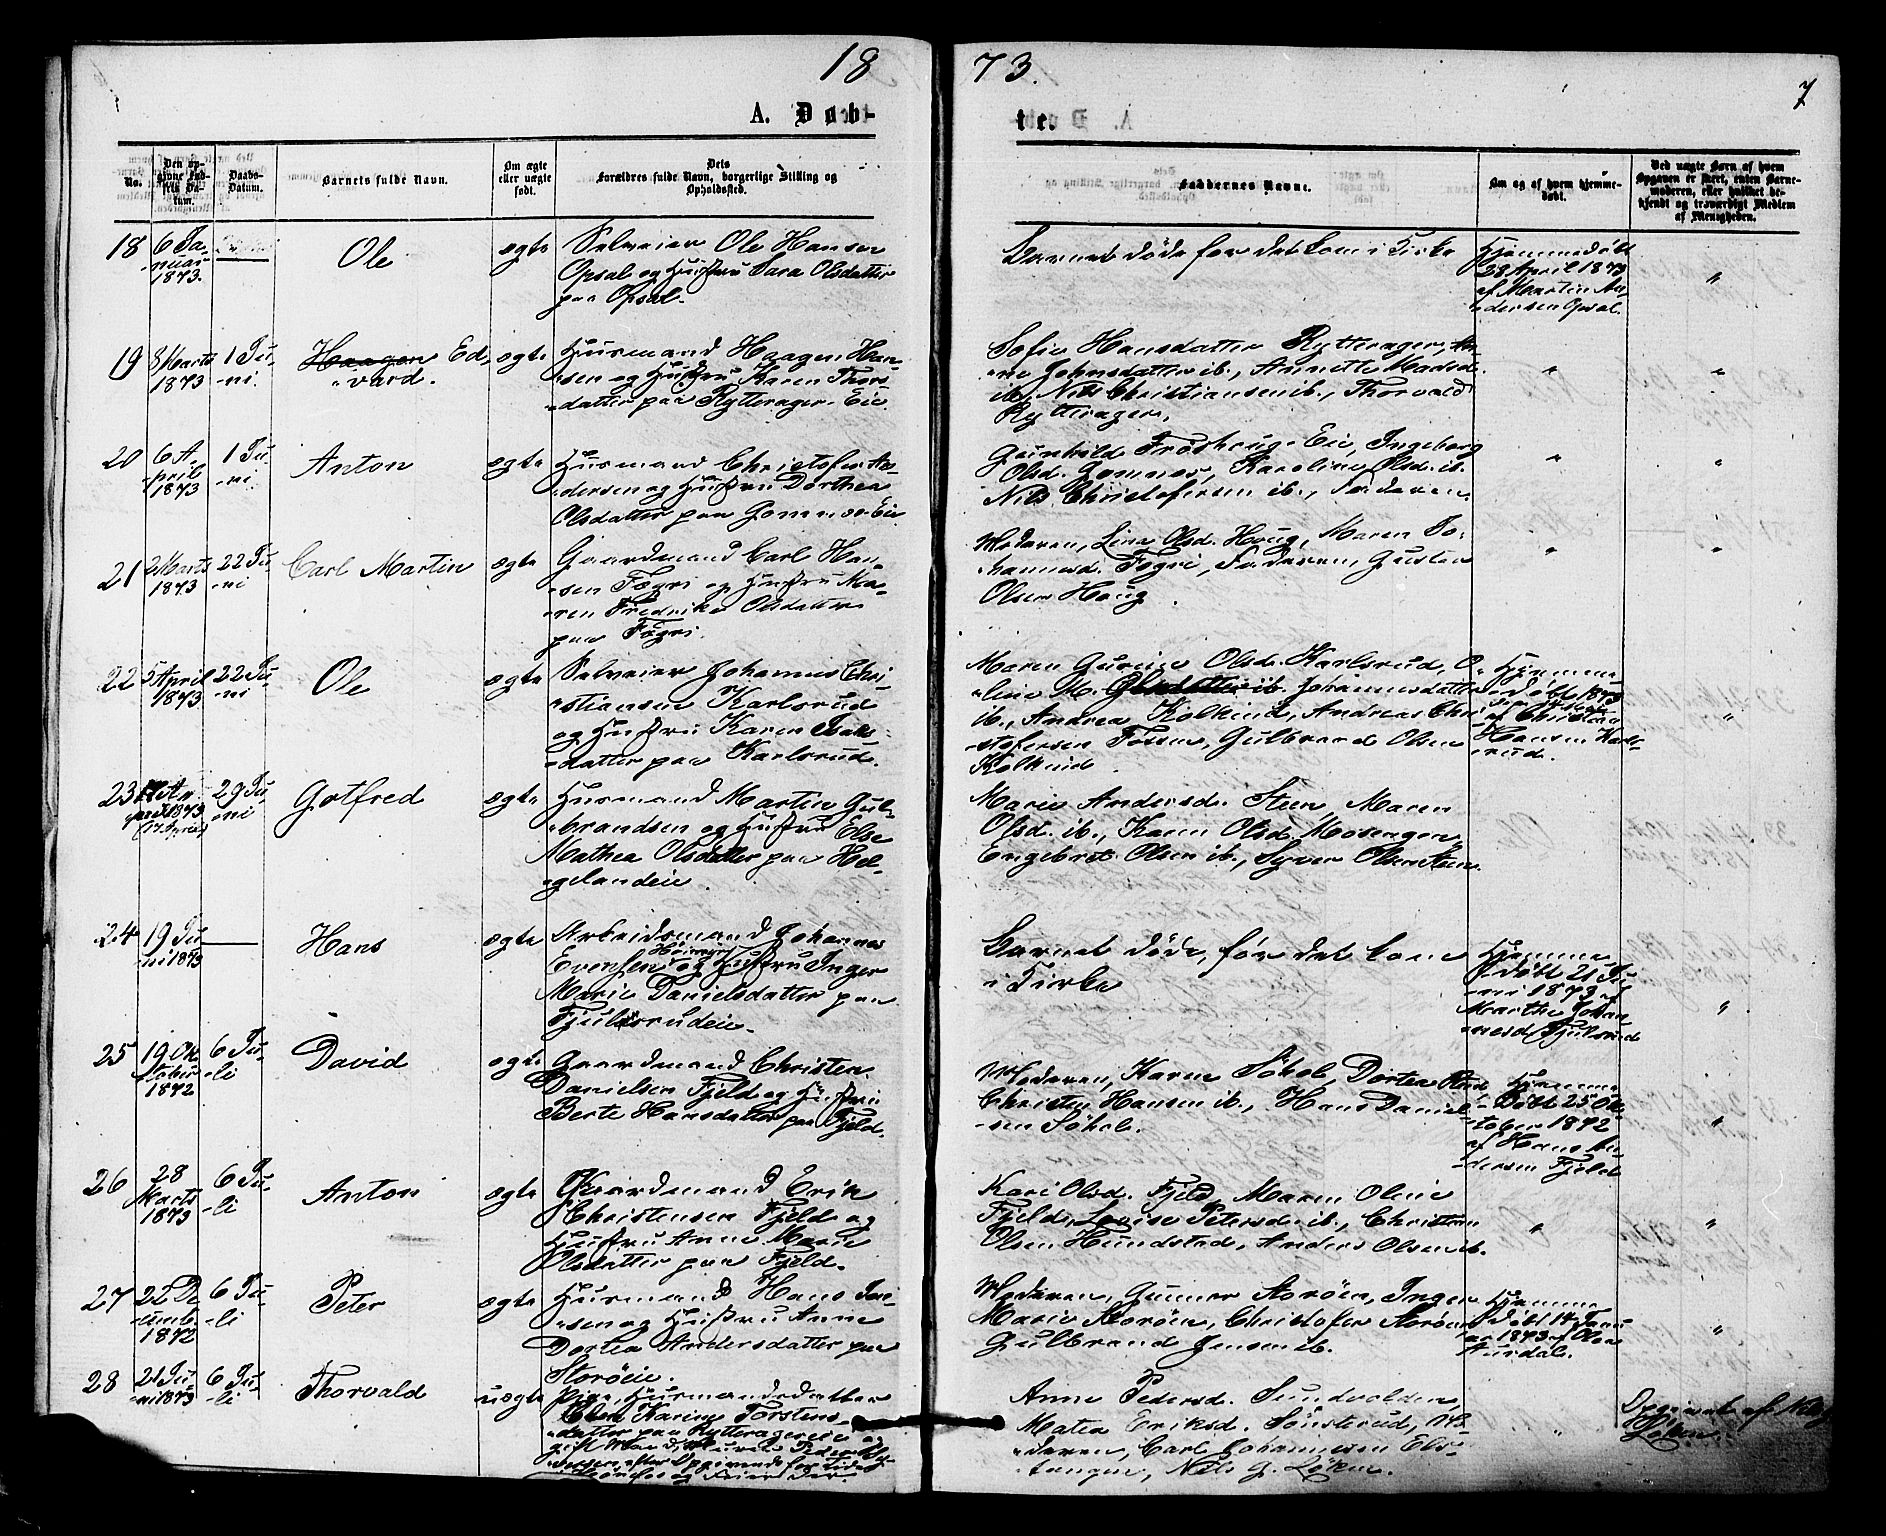 18 73.
7
A. Døb- te.
No.
Den opgivne Fødsels Datum.
Daabs-Datum.
Barnets fulde Navn.
Om ægte eller uægte født.
Dets Forældres fulde Navn, borgerlige Stilling og Opholdssted.
Faddernes Navne.
Om og af hvem hjemmedøbt.
Ved uægte Børn af hvem Opgaven er skeet, enten Barnemoderen, eller hvilket bekjendt og troværdigt Medlem af Menigheden.
18
6 Ja-
nuar
1873.
Ole
ægte
Selveier Ole Hansen
Opsal og Hustru Sara Olsdatter
paa Opsal.
Barnet døde før det kom i Kirke
Hjemmedøbt
28 April 1873
af Martin An-
dersen Opsal.
"
19
8 Marts
1873
1 Ju-
ni.
Haagen Ed-
vard.
ægte
Husmand Haagen Han-
sen og Hustru Karen Thors-
datter paa Rytterager Eie.
Sofie Hansdatter Rytterager, An-
ne Johnsdatter ib., Annette Madsd.
ib., Nils Christiansen ib., Thorvald
Rytterager.
"
"
20
6 A-
pril
1873
1 Ju-
ni.
Anton
ægte
Husmand Christofer An-
dersen og Hustru Dorthea
Olsdatter paa Gomnæs Eie
Gunhild Froshaug Eie, Ingeborg
Olsd. Gomnæs, Karoline Olsd. ib.
Nils Christofersen ib., Faderen.
"
"
21
2 Marts
1873
22 Ju-
ni
Carl Martin
ægte
Gaardmand Carl Han-
sen Fægri og Hustru Ma-
ren Fredrikke Olsdatter
paa Fægri.
Moderen, Lina Olsd. Haug, Maren Jo-
hannesd. Fægri, Faderen, Gustav
Olsen Haug
"
"
22
5 April
1873
22 Ju-
ni
Ole
ægte
Selveier Johannes Chri-
stiansen Karlsrud
og Hustru Karen Isaks-
datter paa Karlsrud.
Maren Gurine Olsd. Karlsrud, O-
line M. Johannesdatter
ib., Andrea Kolkind, Andreas Chri-
stofersen Fossen, Gulbrand Olsen
Kolkind.
Hjemme-
døbt 1873
af Christian
Hansen Karls-
rud.
"
23
(17 April)
29 Ju-
ni
Gotfred
ægte
Husmand Martin Gul-
brandsen og Hustru Else
Mathea Olsdatter paa Hel-
gelandeie.
Marie Andersd. Steen, Maren
Olsd. ib., Karen Olsd. Mosengen,
Engebret Olsen ib., Syver Olsen Steen.
24
19 Ju-
ni 1873
Hans
ægte
Arbeidsmand Johannes
Evensen og Hustru Inger
Marie Danielsdatter paa
Fjulsrudeie.
Barnet døde, før det kom
i Kirke
Hjemme-
døbt 21 Ju-
ni 1873 af
Marthe Johan-
nesd. Fjulsrud
"
25
19 Ok-
tober
1872
6 Ju-
li
David
ægte
Gaardmand Christen
Danielsen Fjeld og Hustru
Berte Hansdatter paa Fjeld.
Moderen, Karen Søhol, Dorten
Christen Hansen ib., Hans Daniel-
sen Søhol.
Hjemme-
døbt 25 Ok-
tober 1872
af Hans An-
dersen Fjeld
"
26
28
Marts
1873
6 Ju-
li
Anton
ægte
Gaardmand Erik
Christensen Fjeld og
Hustru Anne Marie
Olsdatter paa Fjeld.
Kari Olsd. Fjeld, Maren Olsine
Fjeld, Lovise Petersd. ib., Christian
Olsen Hundstad, Anders Olsen ib.
"
"
27
22 De-
cemb.
1872
6 Ju-
li
Peter
ægte
Husmand Hans Jen-
sen og Hustru Anne
Dortea Andersdatter paa
Storøeie.
Moderen, Gunner Storøen, Inger
Marie Storøen, Christofer Storøen
Gulbrand Jensen ib.
Hjemme-
døbt 14 Janu-
ar 1873 af Olava
Aurdal.
"
28
21 Ju-
ni 1873
6 Ju-
li
Thorvald
uægte
Pige, Husmandsdatter
Karine Torstens-
datter paa Rytteragereie og
Anne Pedersd. Sundvolden,
Matea Eriksd. Sønsterud, Mo-
deren, Carl Johannesen Els-
tangen, Nils G. Løken.
"
Opgivet af Nils
Løken.